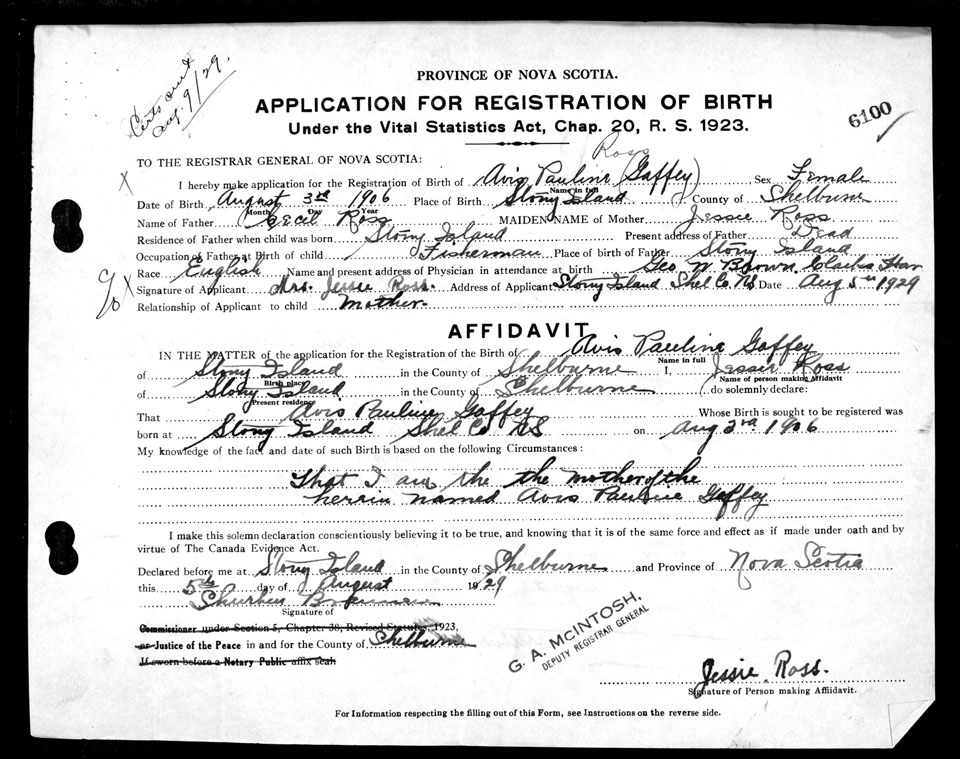 Certs out
Aug. 9/29.
PROVINCE OF NOVA SCOTIA.
APPLICATION FOR REGISTRATION OF BIRTH
Under the Vital Statistics Act, Chap. 20, R. S. 1923.
6100
TO THE REGISTRAR GENERAL OF NOVA SCOTIA:
Ross
I hereby make application for the Registration of Birth of Avis Pauline (Gaffey) Sex Female
Name in full
Date of Birth August 3rd 1906 Place of Birth Stony Island County of Shelburne
Month Day Year
Name of Father Cecil Ross MAIDEN NAME of Mother Jessie Ross
Residence of Father when child was born Stony Island Present address of Father Dead
Occupation of Father at Birth of child Fisherman Place of birth of Father Stony Island
Race English Name and present address of Physician in attendance at birth Geo W Brown Clarks Har
Signature of Applicant Mrs. Jessie Ross. Address of Applicant Stony Island Shel Co NS Date Aug 5th 1929
Relationship of Applicant to child Mother.
AFFIDAVIT
IN THE MATTER of the application for the Registration of the Birth of Avis Pauline Gaffey
Name in full
of Stony Island in the County of Shelburne I, Jessie Ross
Birth place Name of person making Affidavit
of Stony Island in the County of Shelburne do solemnly declare:
Present residence
That Avis Pauline Gaffey Whose Birth is sought to be registered was
born at Stony Island Shel Co NS on Aug 3rd 1906
My knowledge of the fact and date of such Birth is based on the following Circumstances:
That I am the the mother of the
herein named Avis Pauline Gaffey
I make this solemn declaration conscientiously believing it to be true, and knowing that it is of the same force and effect as if made under oath and by
virtue of The Canada Evidence Act.
Declared before me at Stony Island in the County of Shelburne and Province of Nova Scotia
this 5th day of August 1929
Signature of
Commissioner under Section 5, Chapter 38, Revised Statutes, 1923,
or Justice of the Peace in and for the County of Shelburne
If sworn before a Notary Public affix seal
G. A. McINTOSH,
DEPUTY REGISTRAR GENERAL
Jessie Ross.
Signature of Person making Affidavit.
For Information respecting the filling out of this Form, see Instructions on the reverse side.